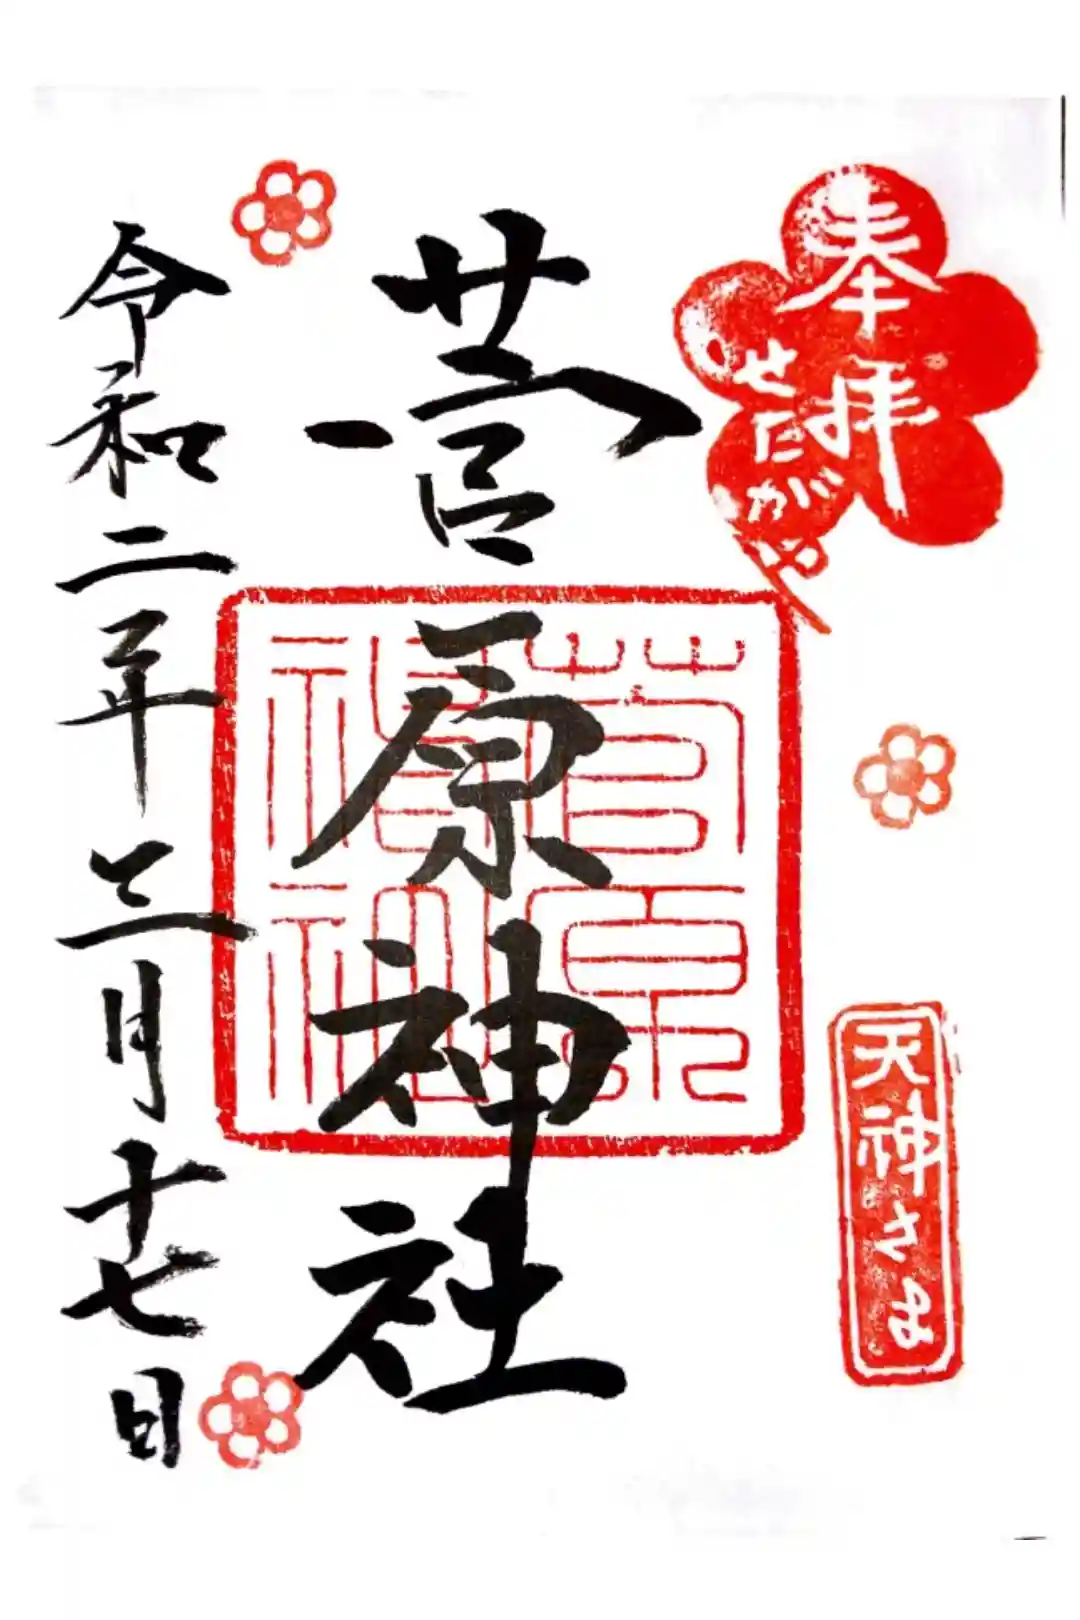 奉拝
せたがや
天神さま
菅原神社
令和二年三月十七日